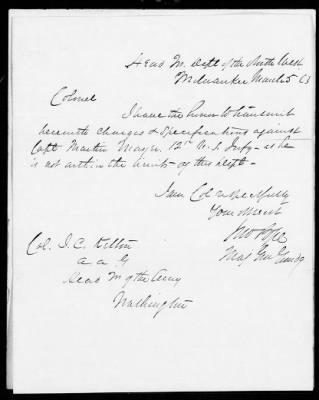 Head Qr. Dept of the North West
Milwaukee March 5 63
Colonel
I have the honor to transmit
herewith charges & specifications against
Capt Martin 12th U.S. Infy - as he
is not within the limits of this Dept -
I am Col v Respectfully
Your obt servt
Jno Pope
Maj Gen Comdg
Col. J. C. Kelton
a a G
Head Qr of the Army
Washington